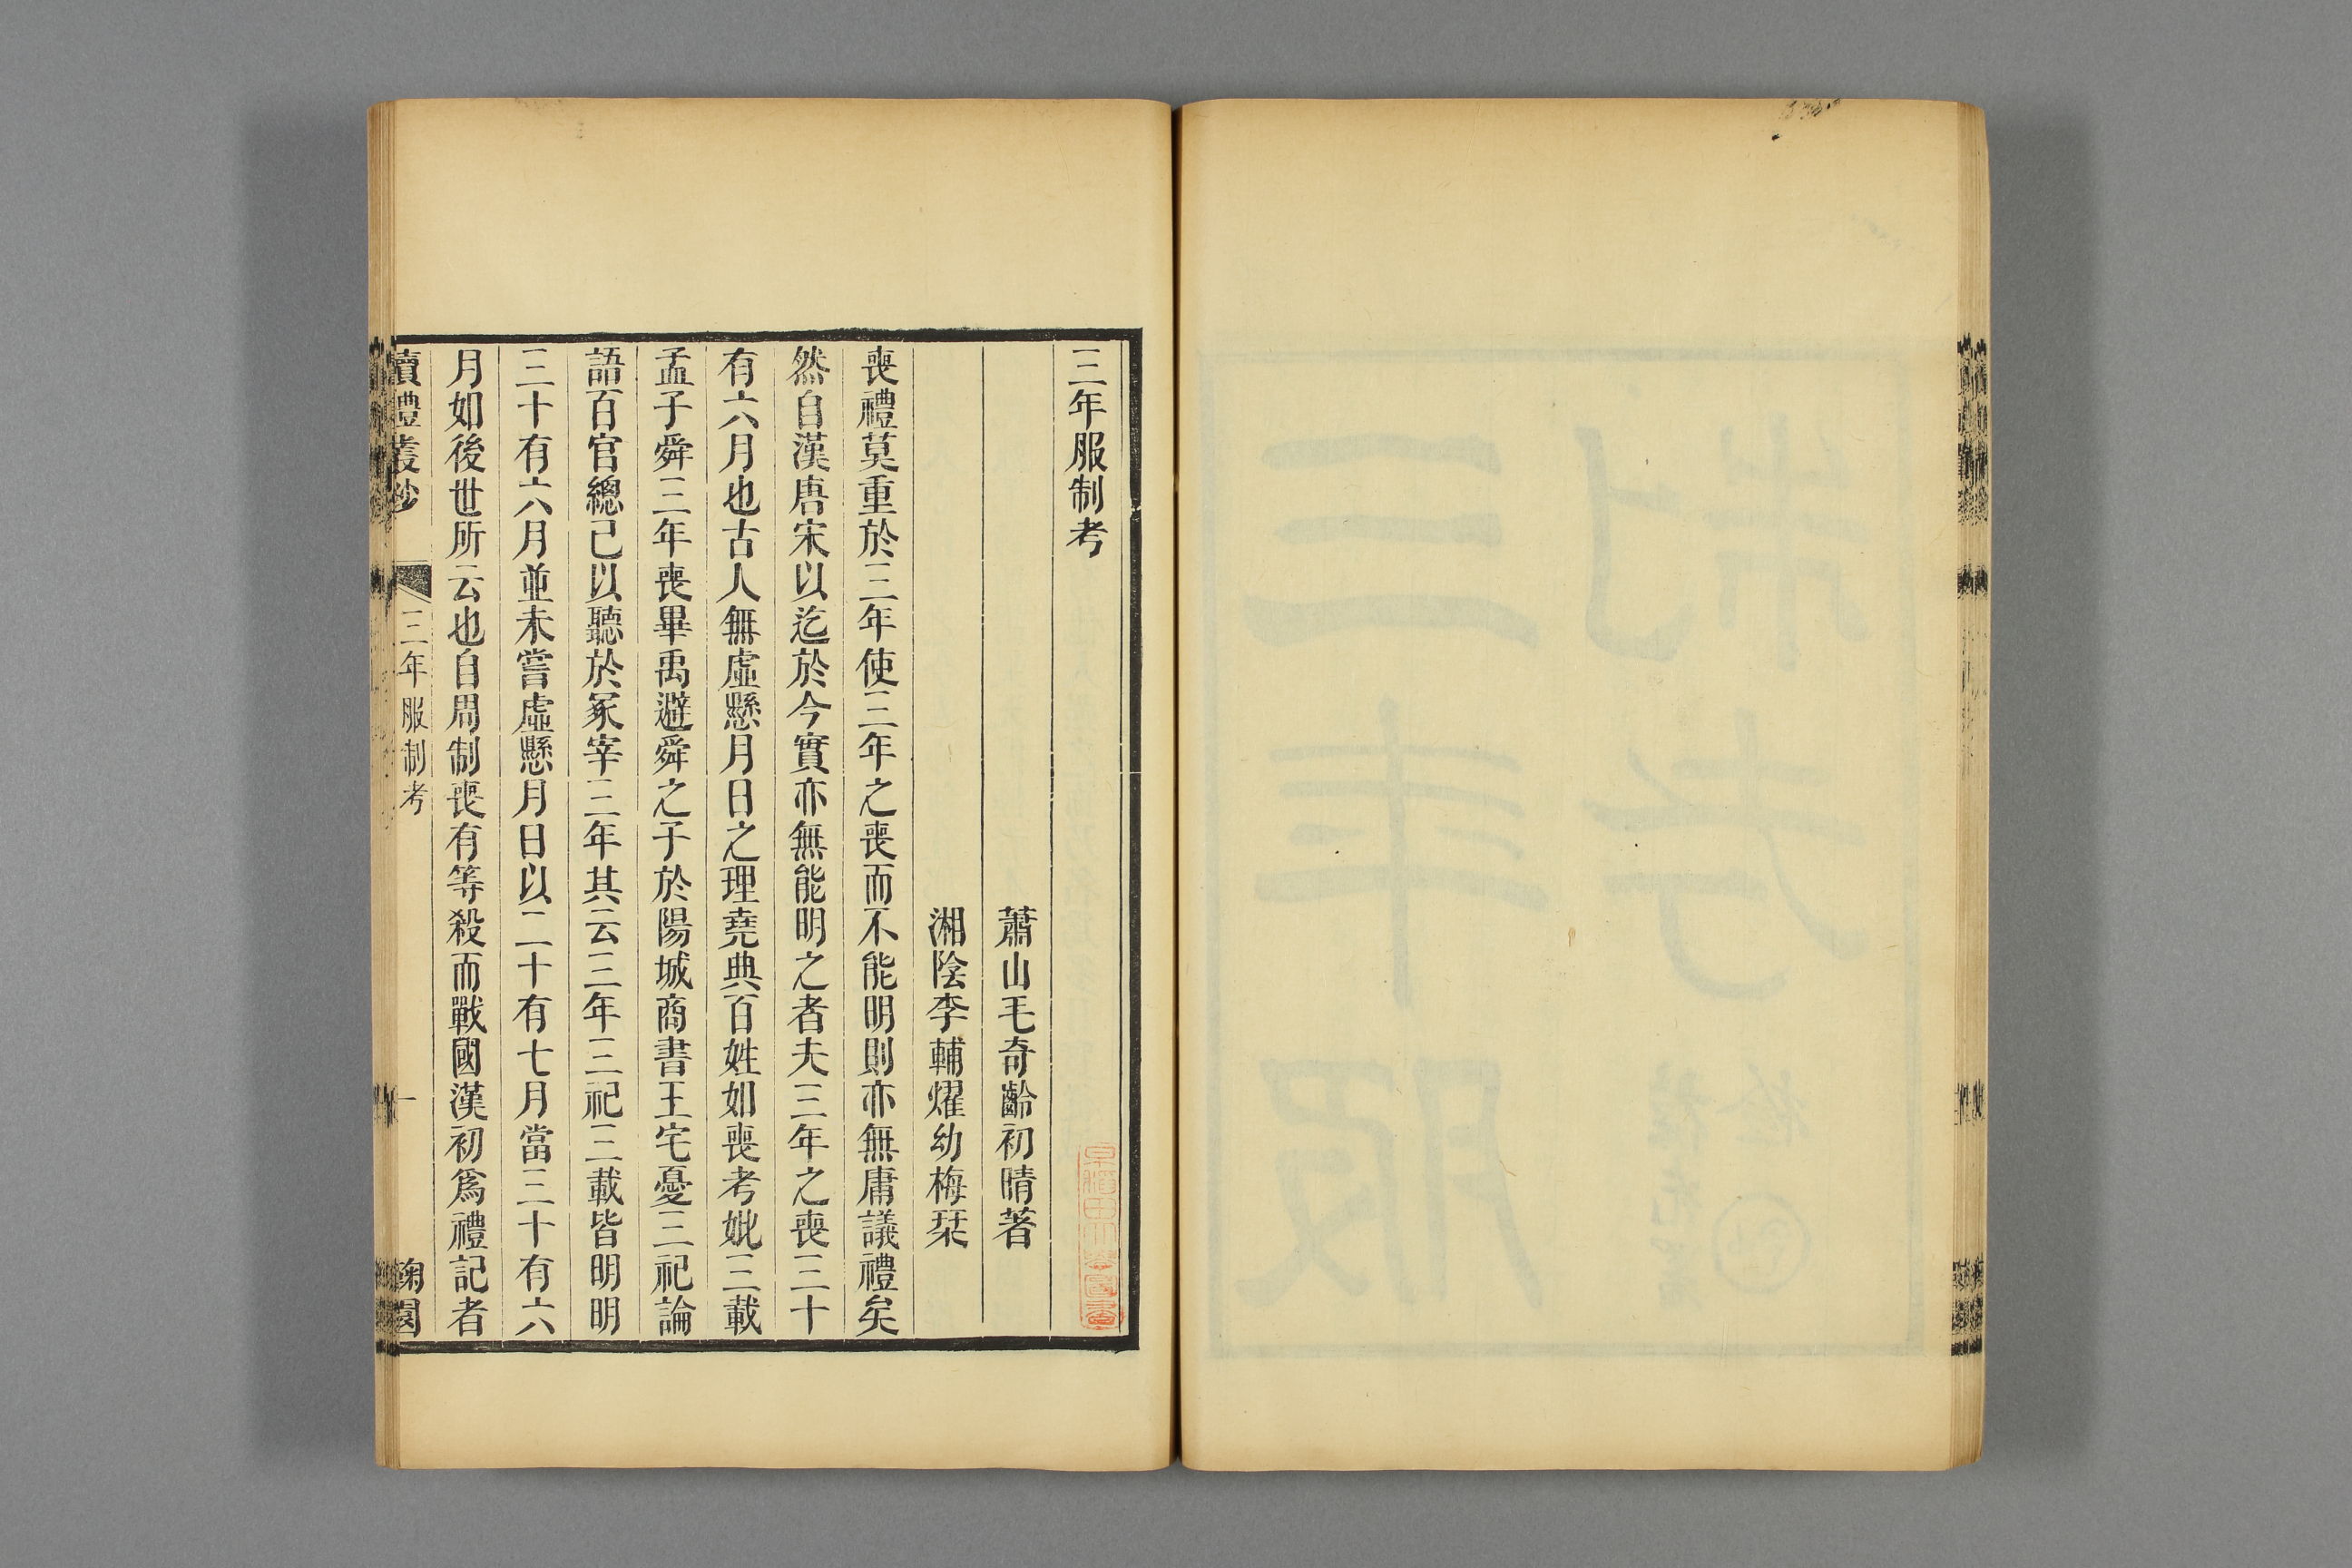 三年服制考
蕭山毛奇齡初晴著
湘陰李輔燿幼梅栞
喪禮莫重於三年使三年之喪而不能明則亦無庸議禮矣
然自漢唐宋以迄於今實亦無能明之者夫三年之喪三十
有六月也古人無虛懸月日之理堯典百姓如喪考妣三載
孟子舜三年喪畢禹避舜之子於陽城商書王宅憂三祀論
語百官總己以聽於冢宰三年其云三年三祀三載皆明明
三十有六月並未嘗虛懸月日以二十有七月當三十有六
月如後世所云也自周制喪有等殺而戰國漢初爲禮記者
讀禮叢鈔
三年服制考
一
鞠園
早稻田大學圖書